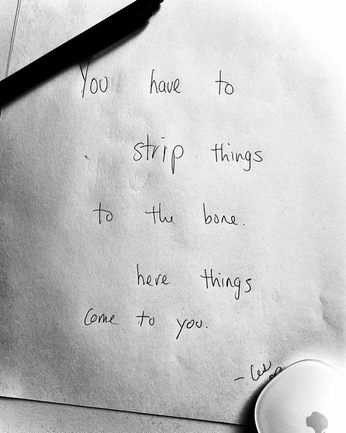 You have to
strip things
to the bone.
here things
come to you.